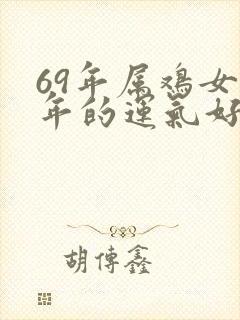 69年属鸡女
年的运气好
胡传鑫